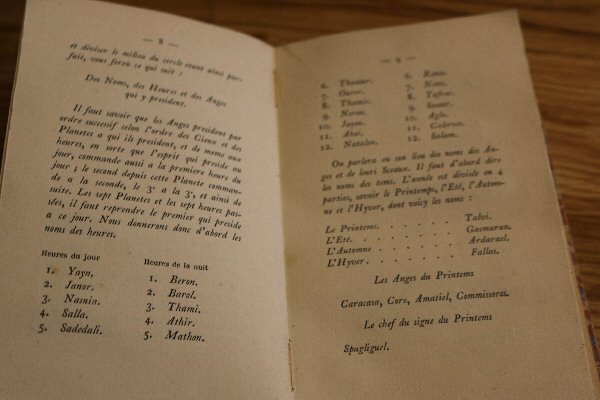 — 8 —
et diviser le milieu du cercle etant ainsi par-
fait, vous ferez ce qui suit :
Des Noms, des Heures et des Anges
qui y president.
Il faut savoir que les Anges president par
ordre successif selon l'ordre des Cieux et des
Planetes a qui ils president, et de meme aux
heures, en sorte que l'esprit qui preside au
jour, commande aussi a la premiere heure du
jour ; le second depuis cette Planete comman-
de a la seconde, le 3ᵉ a la 3ᵉ, et ainsi de
suite. Les sept Planetes et les sept heures pas-
sées, il faut reprendre le premier qui preside
a ce jour. Nous donnerons donc d'abord les
noms des heures.
Heures du jour Heures de la nuit
1. Yayn. 1. Beron.
2. Janor. 2. Barol.
3. Nasnia. 3. Thami.
4. Salla. 4. Athir.
5. Sadedali. 5. Mathon.
— 9 —
6. Thamur. 6. Rana.
7. Ourer. 7. Netos.
8. Thamic. 8. Tafrac.
9. Neron. 9. Sassur.
10. Jayon. 10. Aglo.
11. Abai. 11. Calerva.
12. Natalon. 12. Salam.
On parlera en son lieu des noms des An-
ges et de leurs Sceaux. Il faut d'abord dire
les noms des tems. L'année est divisée en 4
parties, savoir le Printemps, l'Eté, l'Autom-
ne et l'Hyver, dont voicy les noms :
Le Printems. . . . . . Talvi.
L'Eté. . . . . . . Gasmaran.
L'Automne . . . . . . Ardarael.
L'Hyver. . . . . . . Fallas.
Les Anges du Printems
Caracasa, Core, Amatiel, Commissoros.
Le chef du signe du Printems
Spugliguel.